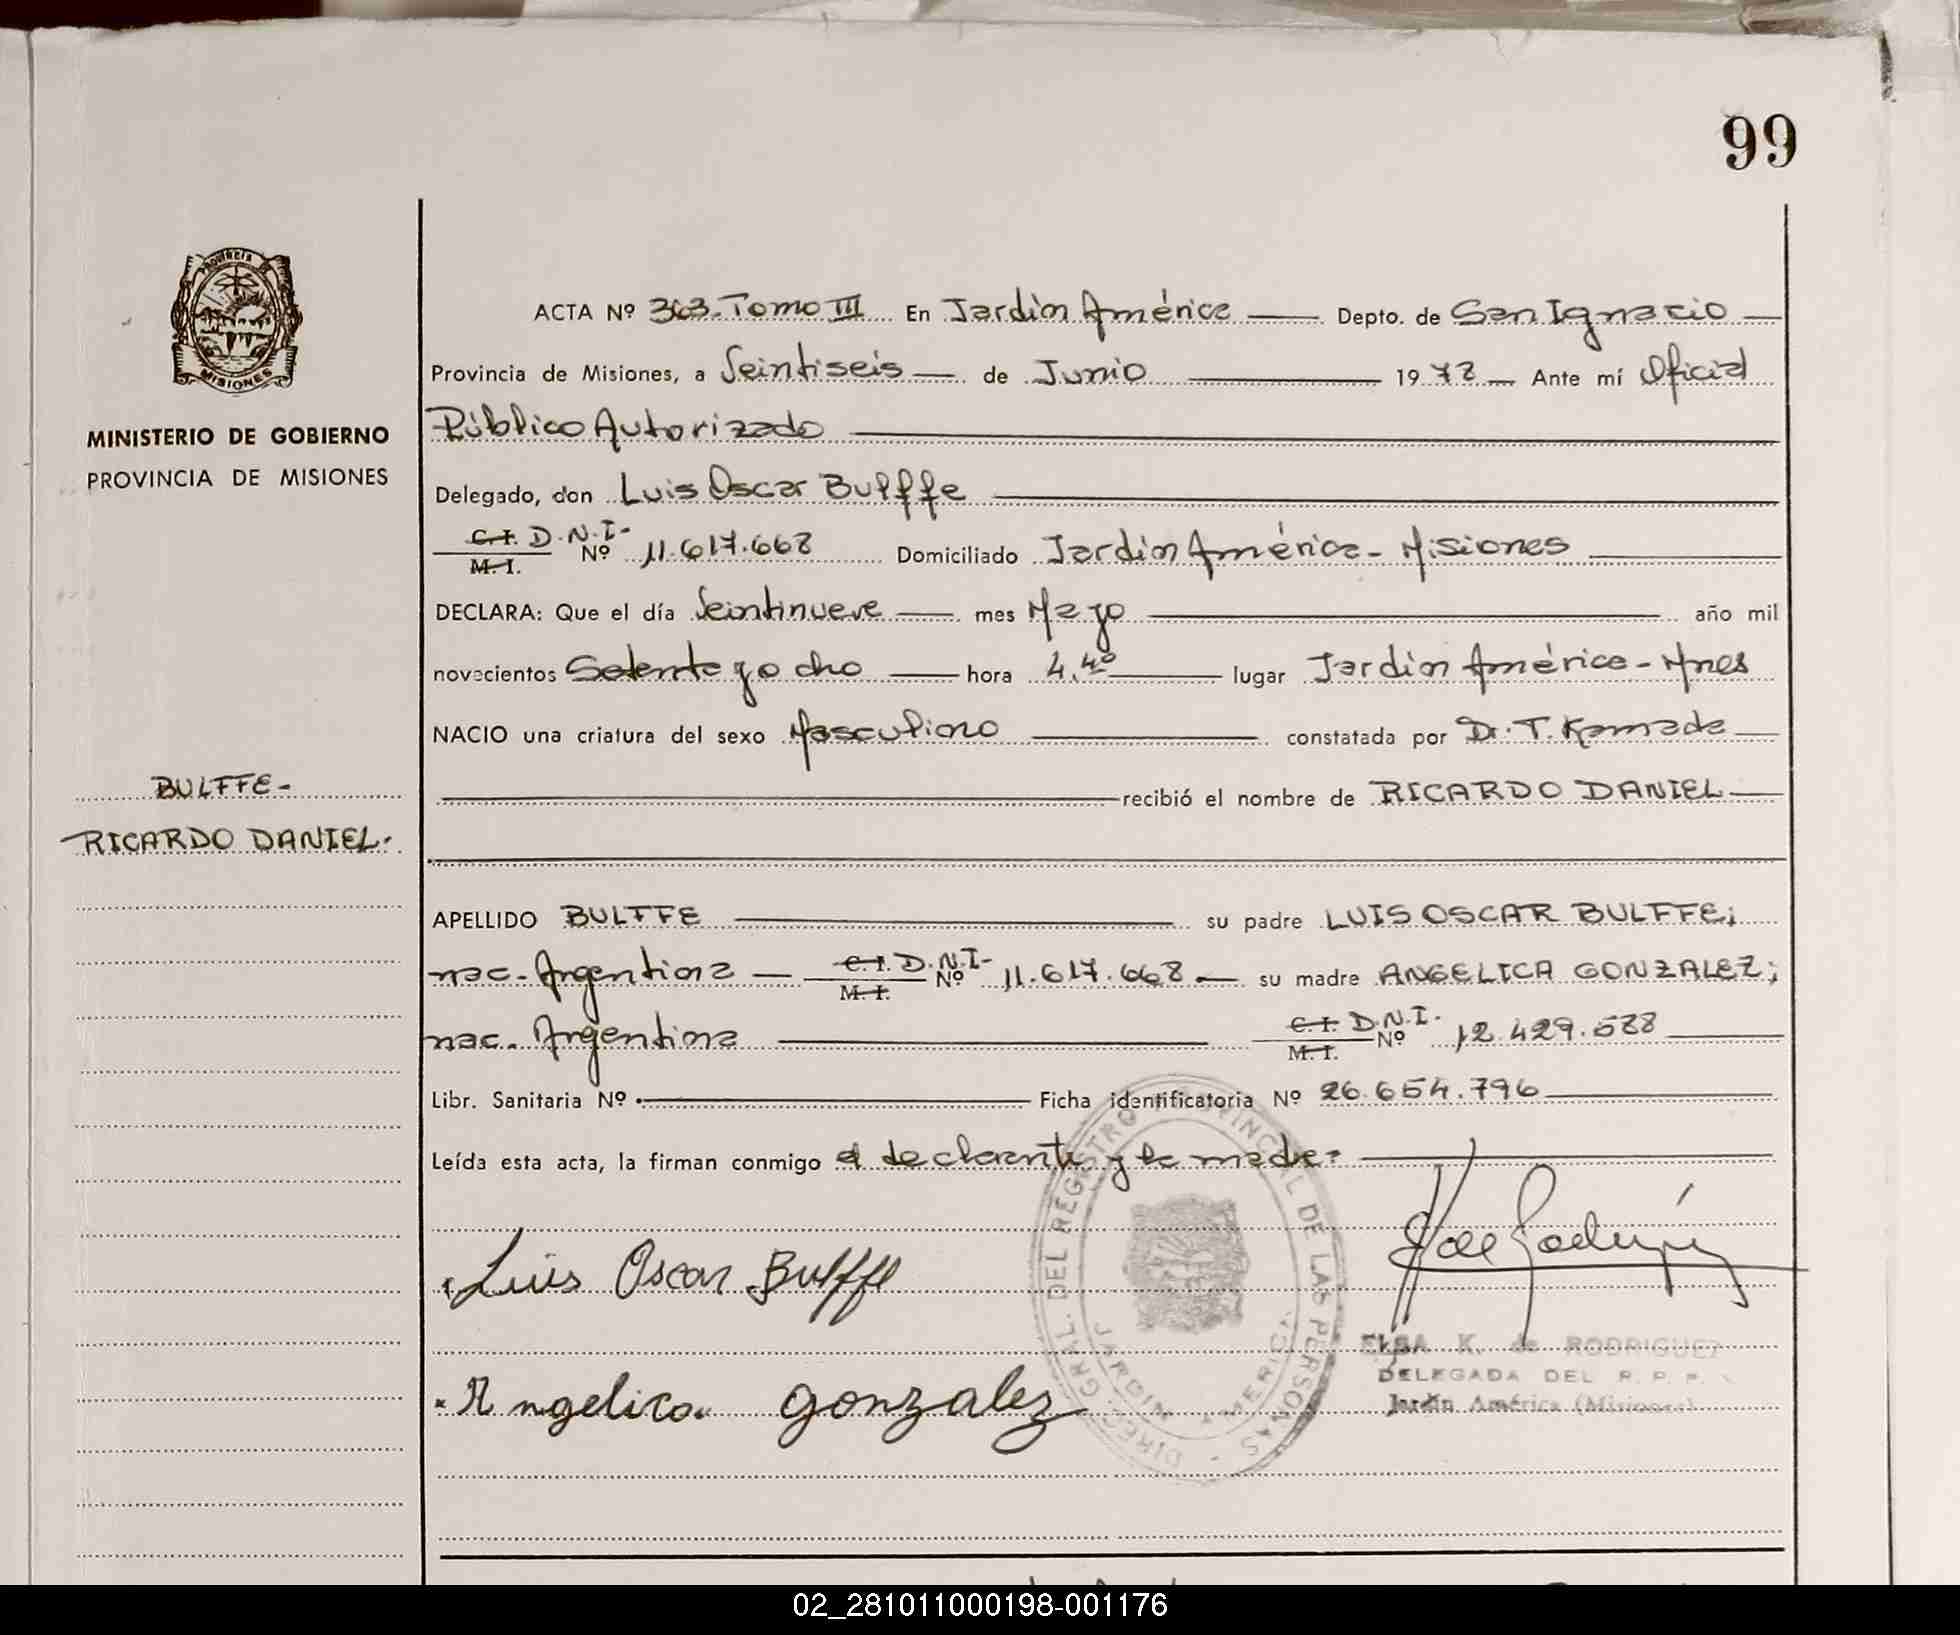 99
PROVINCIA
MISIONES
MINISTERIO DE GOBIERNO
PROVINCIA DE MISIONES
BULFFE-
RICARDO DANIEL.
ACTA Nº 363. Tomo III En Jardín América Depto. de San Ignacio
Provincia de Misiones, a Veintiseis de Junio 1978 Ante mí Oficial
Público Autorizado
Delegado, don Luis Oscar Bulffe
C.I. D.N.I- M.I. Nº 11.617.668 Domiciliado Jardín América - Misiones
DECLARA: Que el día Veintinueve mes Mayo año mil
novecientos Setenta y ocho hora 4.40 lugar Jardín América - Mnes
NACIO una criatura del sexo Masculino constatada por Dr. T. Kamada
recibió el nombre de RICARDO DANIEL
APELLIDO BULFFE su padre LUIS OSCAR BULFFE;
nac. Argentina C.I. D.N.I- M.I. Nº 11.617.668 su madre ANGELICA GONZALEZ;
nac. Argentina C.I. D.N.I. M.I. Nº 12.429.588
Libr. Sanitaria Nº Ficha identificatoria Nº 26.654.796
Leída esta acta, la firman conmigo el declarante y la madre
Luis Oscar Bulffe
Angelica gonzalez
DIREC. GRAL. DEL REGISTRO PROVINCIAL DE LAS PERSONAS
JARDIN AMERICA
ELSA K. de RODRIGUEZ
DELEGADA DEL R. P. P.
Jardín América (Misiones)
02_281011000198-001176